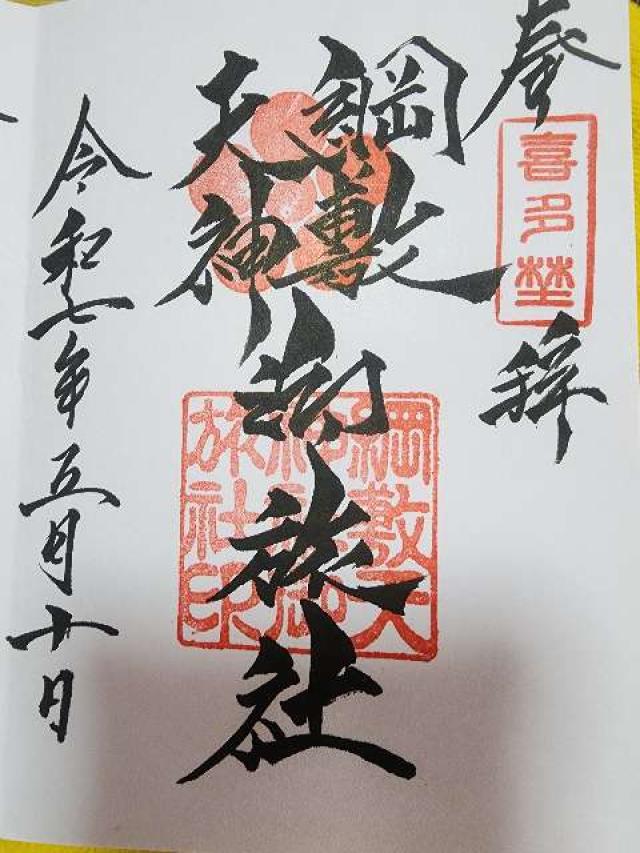 奉拝
喜多埜
綱敷
天神
御旅社
綱敷天
神御
旅社印
令和七年五月十日